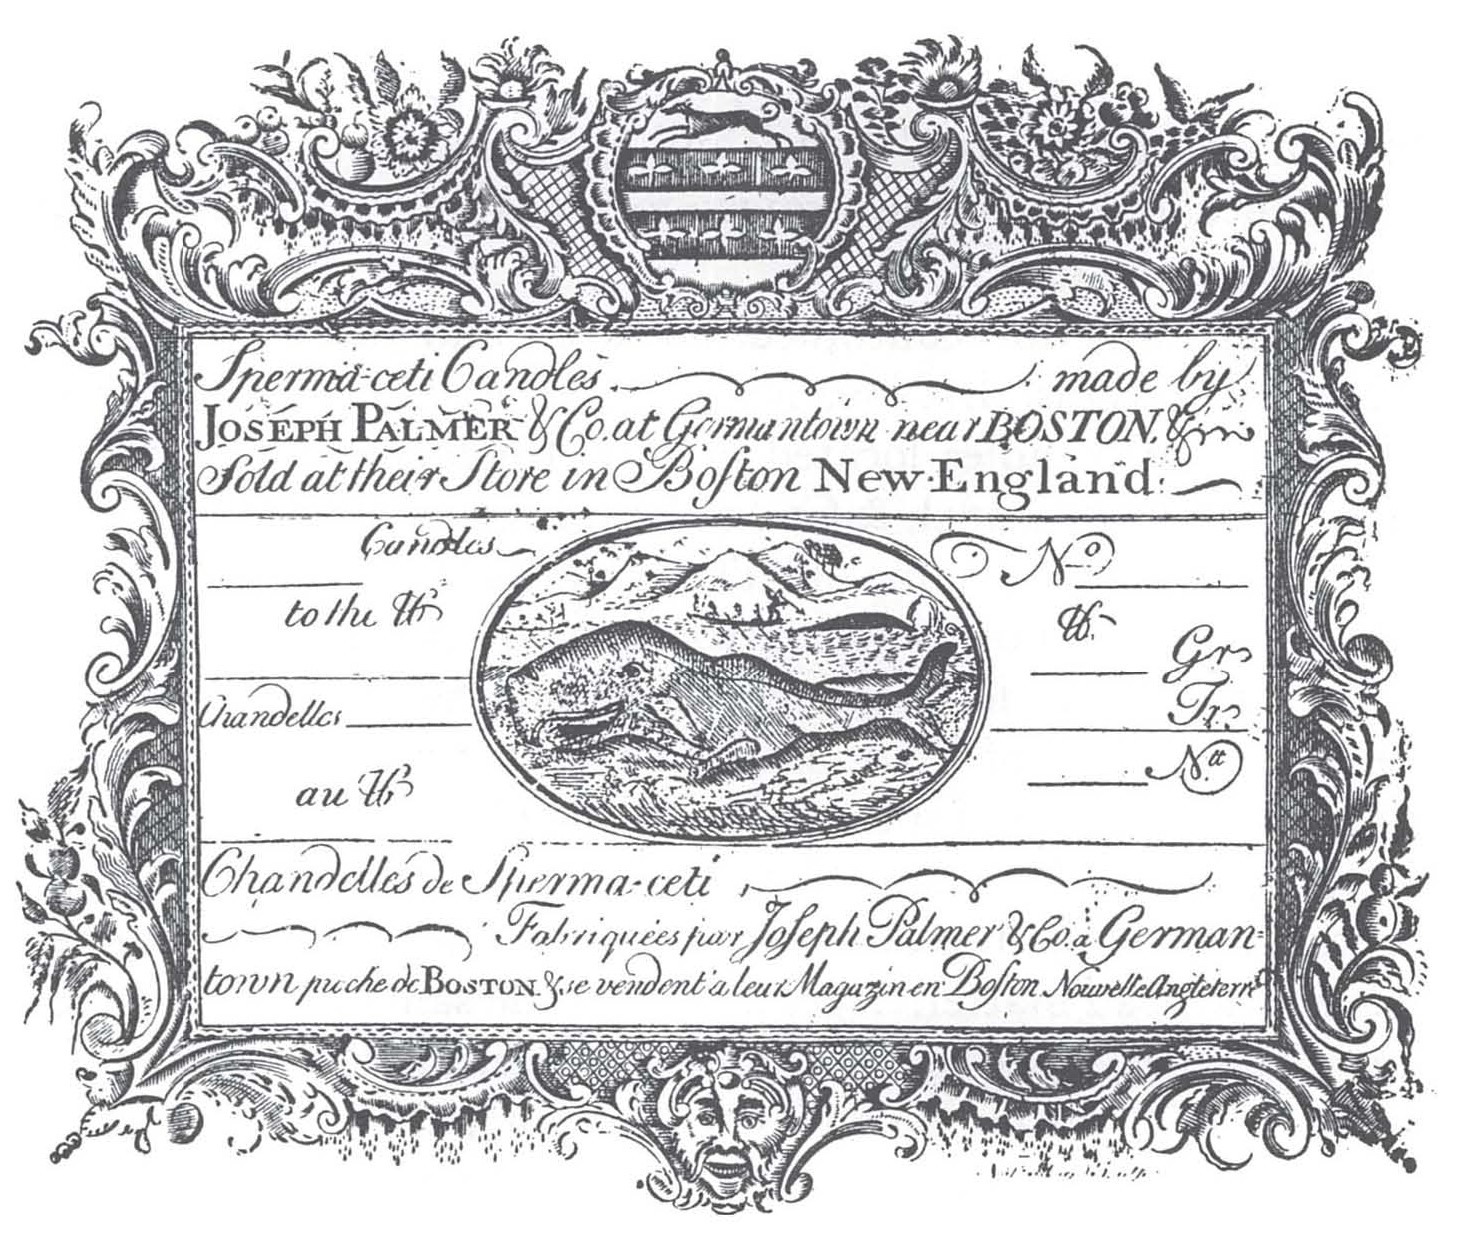 Sperma-ceti Candles made by
JOSEPH PALMER & Co. at Germantown near BOSTON, &
Sold at their Store in Boston New-England
Candles No
to the lb
lb
Gr
Tr
Chandelles
Nt
au lb
Chandelles de Sperma-ceti
Fabriquées par Joseph Palmer & Co. a German-
town puche de BOSTON, & se vendent a leur Magazin en Boston Nouvelle Angleterre